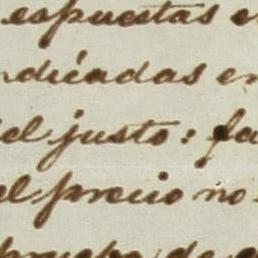 espuestas e
ndicadas en
el justo: fa
el precio no
prueba de